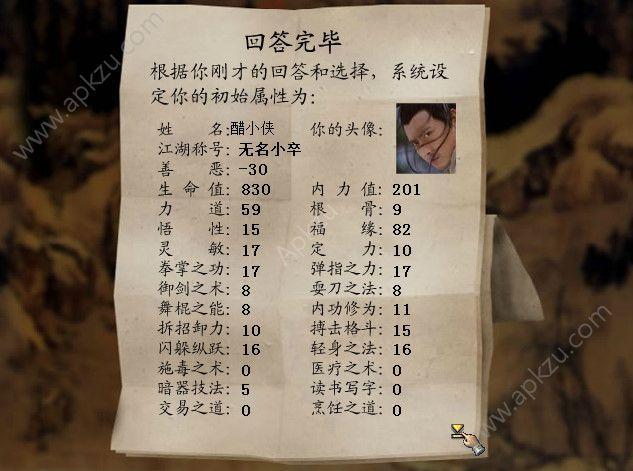 回答完毕
根据你刚才的回答和选择，系统设
定你的初始属性为：
姓 名:醋小侠 你的头像:
江湖称号: 无名小卒
善 恶: -30
生 命 值: 830 内 力 值: 201
力 道: 59 根 骨: 9
悟 性: 15 福 缘: 82
灵 敏: 17 定 力: 10
拳掌之功: 17 弹指之力: 17
御剑之术: 8 耍刀之法: 8
舞棍之能: 8 内功修为: 11
拆招卸力: 10 搏击格斗: 15
闪躲纵跃: 16 轻身之法: 16
施毒之术: 0 医疗之术: 0
暗器技法: 5 读书写字: 0
交易之道: 0 烹饪之道: 0
www.apkzu.com
Apkzu.com
www.apkzu.com